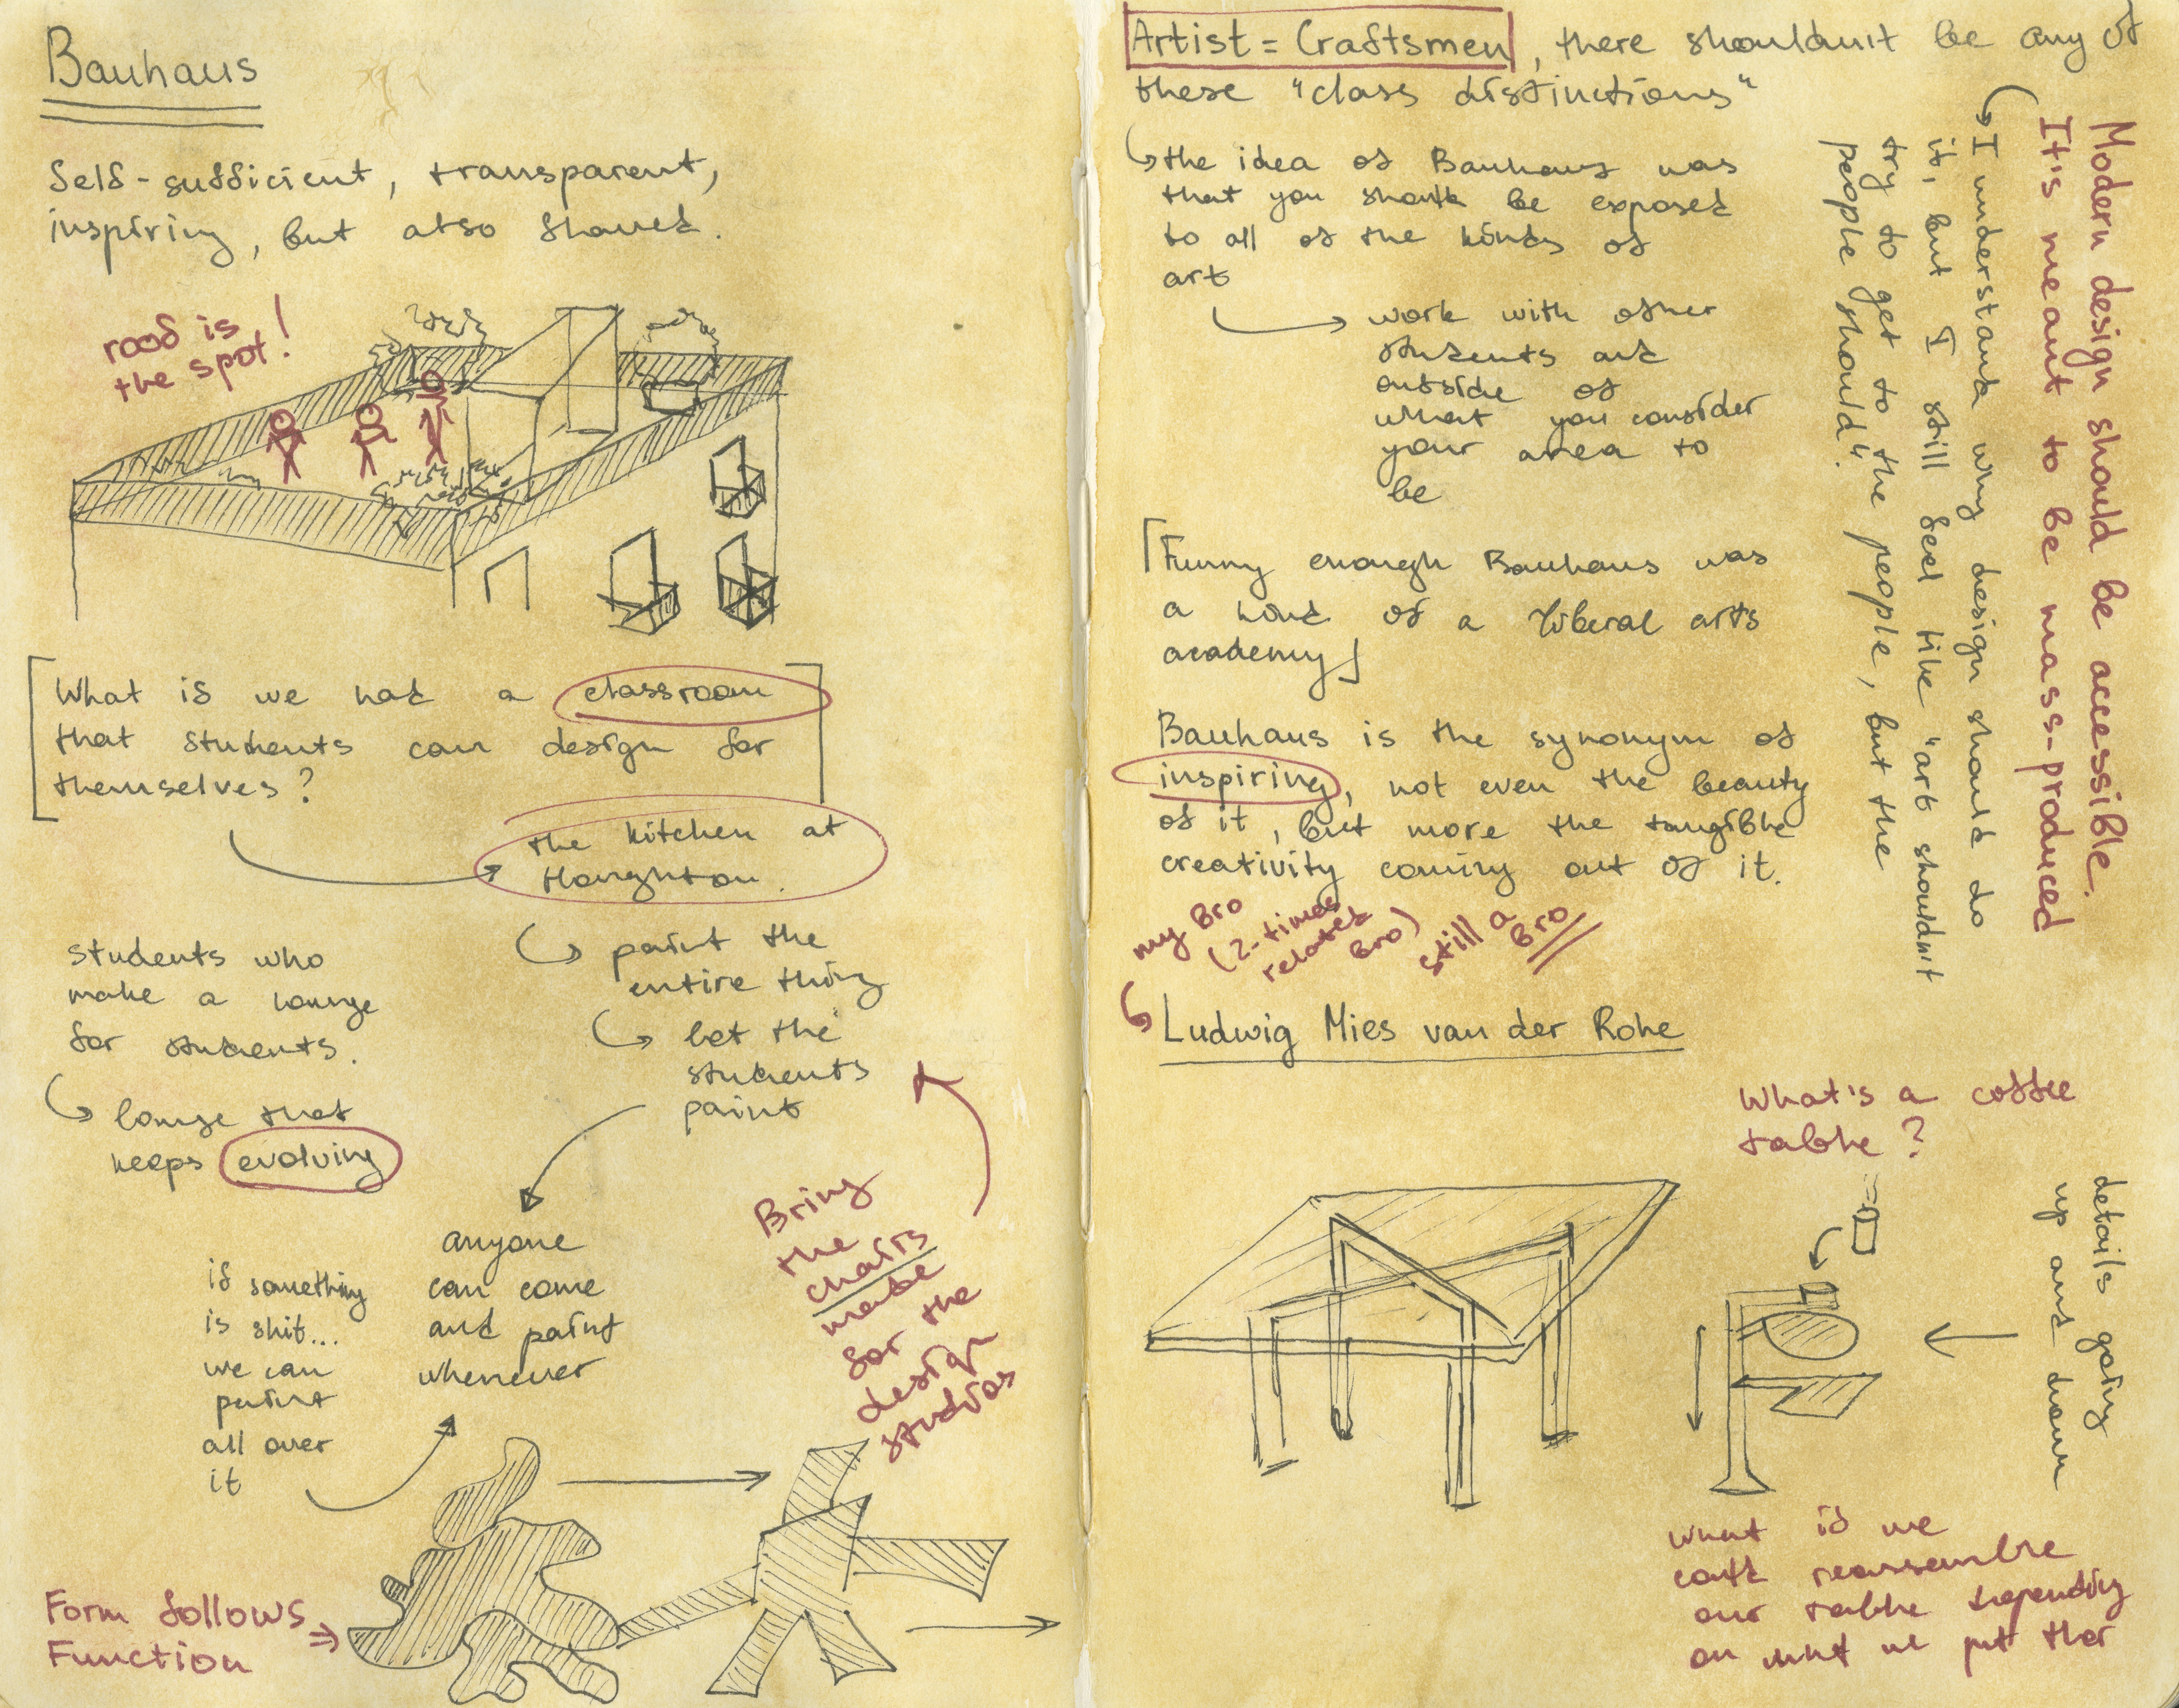 Bauhaus
Self-sufficient, transparent,
inspiring, but also shared.
roof is
the spot!
What if we had a classroom
that students can design for
themselves?
the kitchen at
students who
make a lounge
for students.
lounge that
keeps evolving
paint the
entire thing
let the
students
paint
anyone
can come
and paint
whenever
if something
is shit...
we can
paint
all over
it
Bring
the
chairs
made
for the
design
studios
Form follows
Function
Artist = Craftsmen, there shouldn't be any of
these "class distinctions"
the idea of Bauhaus was
that you should be exposed
to all of the kinds of
art
work with other
students and
outside of
what you consider
your area to
be
Funny enough Bauhaus was
a kind of a liberal arts
academy
Bauhaus is the synonym of
inspiring, not even the beauty
of it, but more the tangible
creativity coming out of it.
my Bro
(2-times
related
Bro)
still a
Bro
Ludwig Mies van der Rohe
Modern design should be accessible.
It's meant to be mass-produced
I understand why design should do
it, but I still feel like "art shouldn't
try to get to the people, but the
people should".
What's a coffee
table?
details going
up and down
what if we
could reassemble
our table depending
on what we put